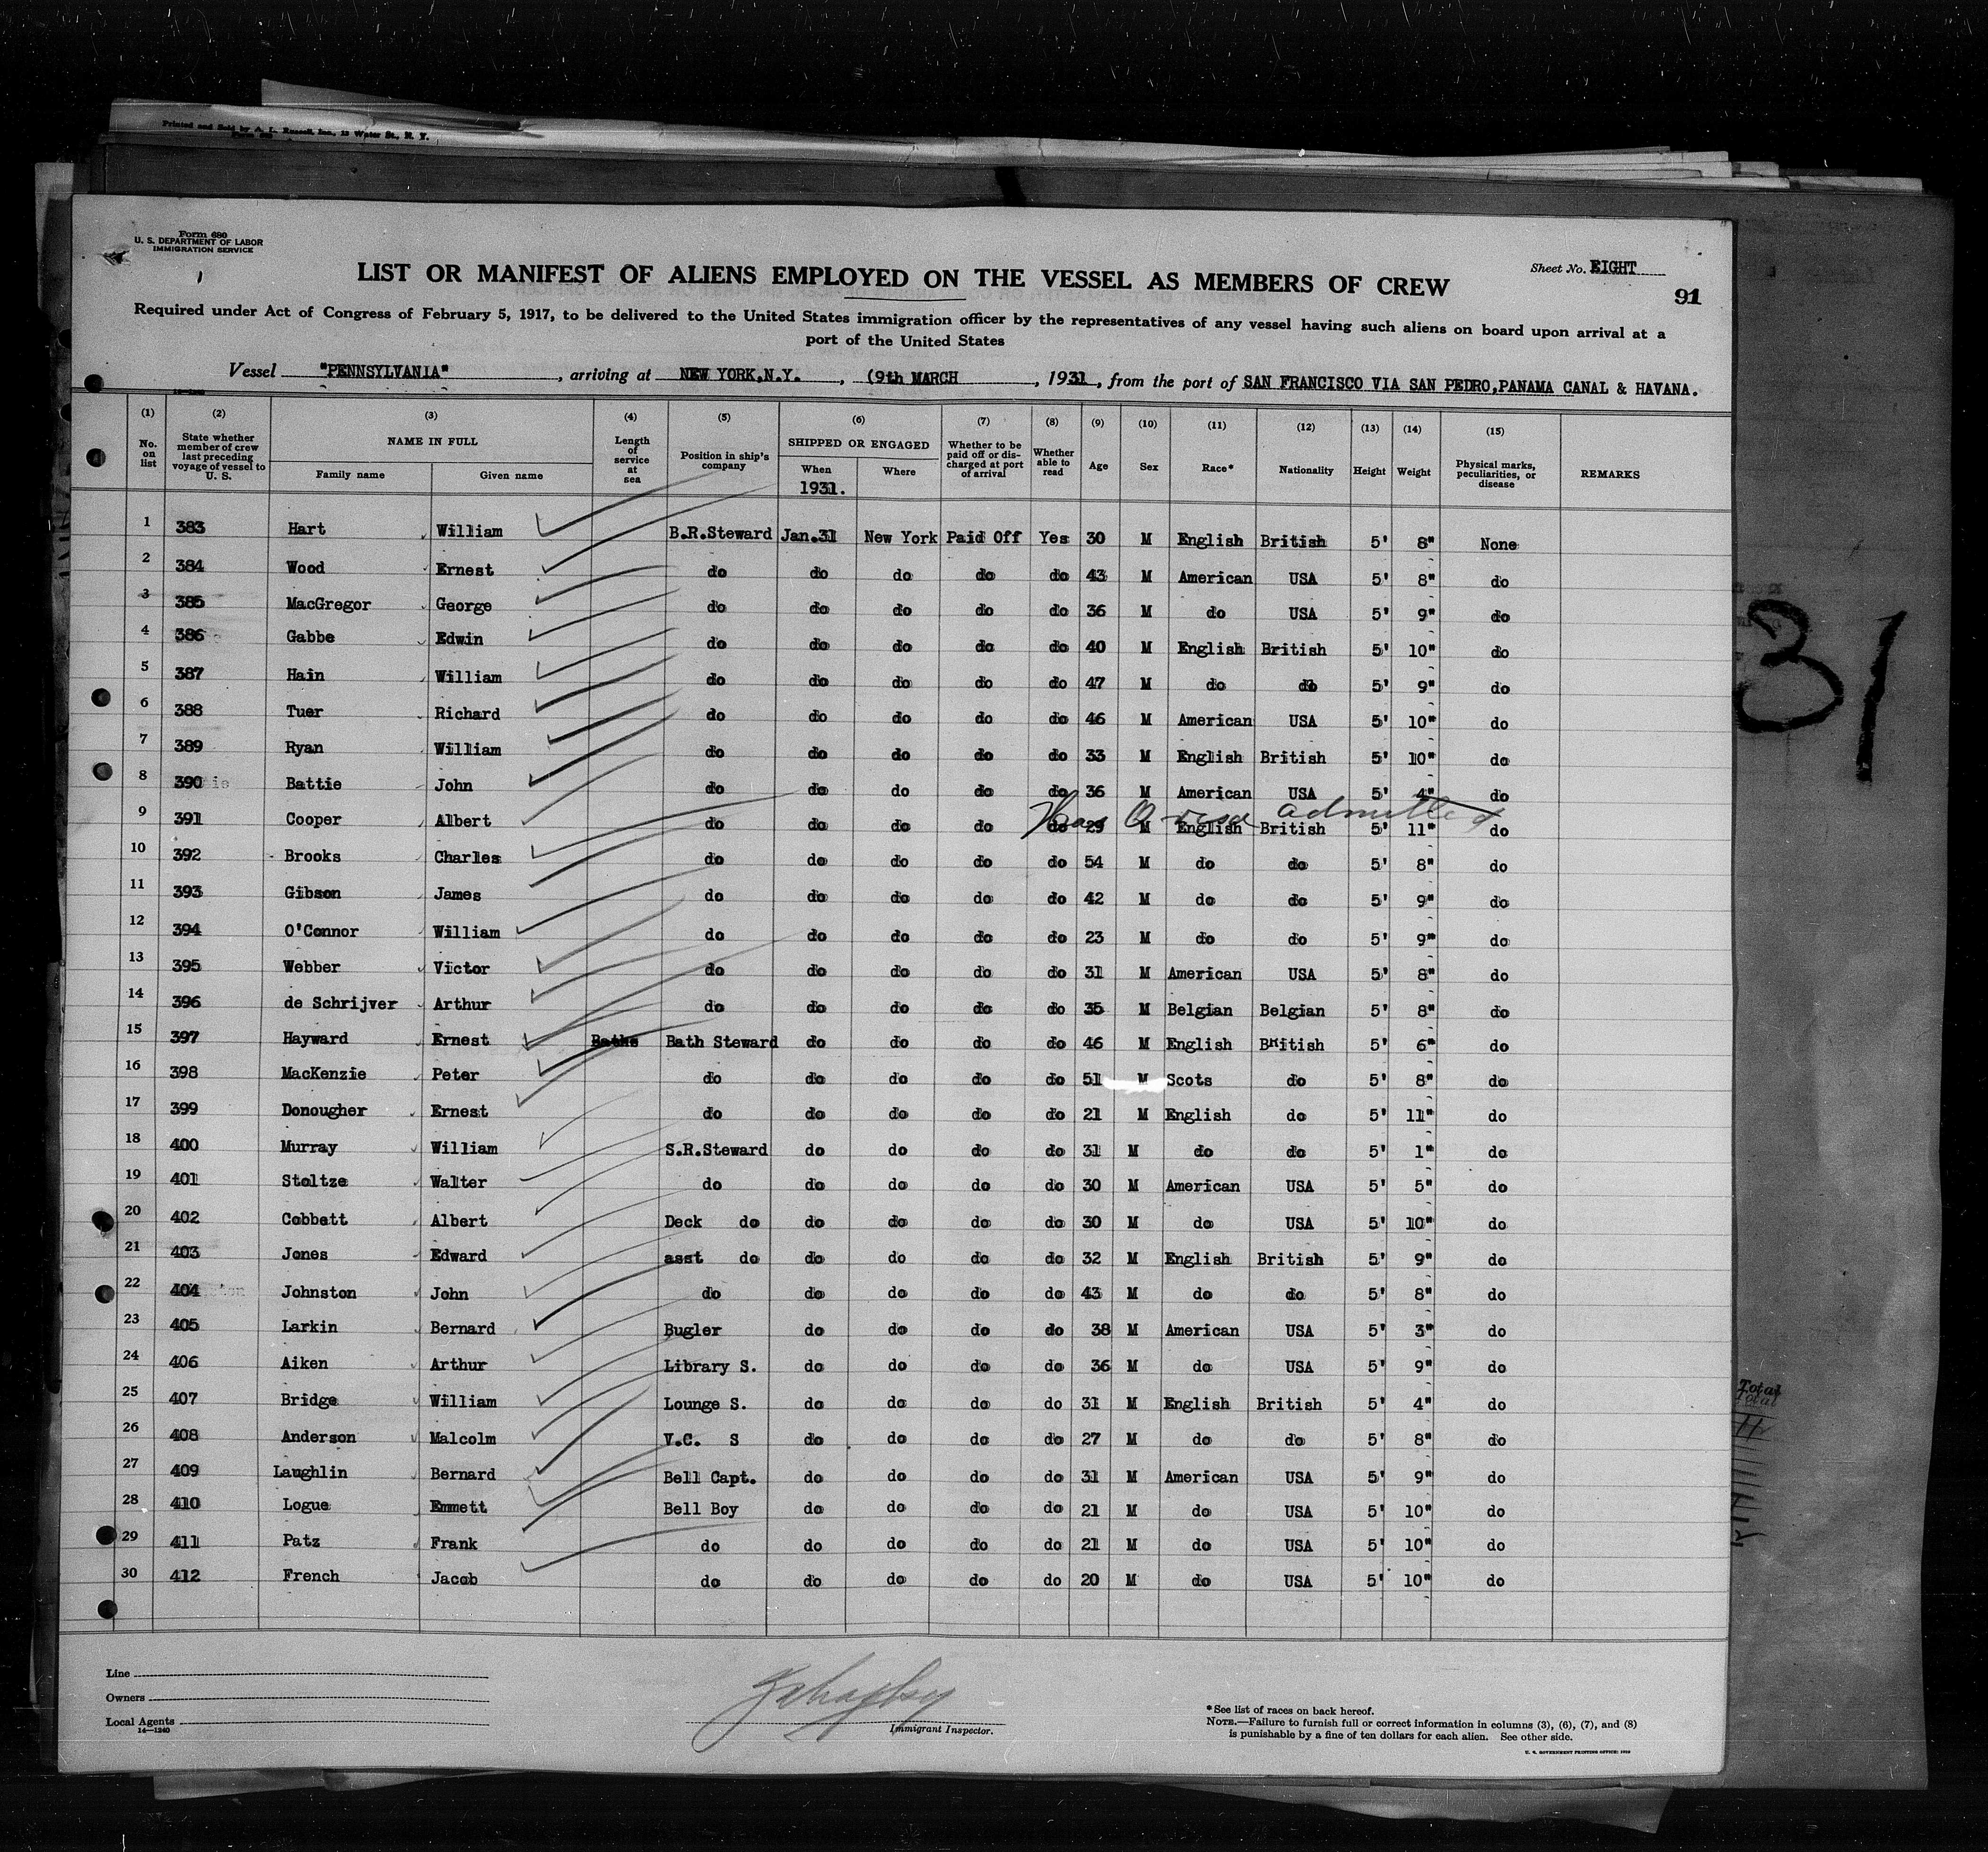 Printed and Sold by A. L. Russell, Inc., 12 Water St., N. Y.
Form 680
U. S. DEPARTMENT OF LABOR
IMMIGRATION SERVICE
Sheet No. EIGHT
91
LIST OR MANIFEST OF ALIENS EMPLOYED ON THE VESSEL AS MEMBERS OF CREW
Required under Act of Congress of February 5, 1917, to be delivered to the United States immigration officer by the representatives of any vessel having such aliens on board upon arrival at a
port of the United States
Vessel "PENNSYLVANIA", arriving at NEW YORK,N.Y., (9th MARCH, 1931, from the port of SAN FRANCISCO VIA SAN PEDRO,PANAMA CANAL & HAVANA.
(1) (2) (3) (4) (5) (6) (7) (8) (9) (10) (11) (12) (13) (14) (15)
No. on list State whether member of crew last preceding voyage of vessel to U. S. NAME IN FULL Family name Given name Length of service at sea Position in ship's company SHIPPED OR ENGAGED When Where Whether to be paid off or discharged at port of arrival Whether able to read Age Sex Race* Nationality Height Weight Physical marks, peculiarities, or disease REMARKS
1931.
1 383 Hart William B.R.Steward Jan.31 New York Paid Off Yes 30 M English British 5' 8" None
2 384 Wood Ernest do do do do do 43 M American USA 5' 8" do
3 385 MacGregor George do do do do do 36 M do USA 5' 9" do
4 386 Gabbe Edwin do do do do do 40 M English British 5' 10" do
5 387 Hain William do do do do do 47 M do do 5' 9" do
6 388 Tuer Richard do do do do do 46 M American USA 5' 10" do
7 389 Ryan William do do do do do 33 M English British 5' 10" do
8 390 Battie John do do do do do 36 M American USA 5' 4" do
Has visa admitted
9 391 Cooper Albert do do do do do 29 M English British 5' 11" do
10 392 Brooks Charles do do do do do 54 M do do 5' 8" do
11 393 Gibson James do do do do do 42 M do do 5' 9" do
12 394 O'Connor William do do do do do 23 M do do 5' 9" do
13 395 Webber Victor do do do do do 31 M American USA 5' 8" do
14 396 de Schrijver Arthur do do do do do 35 M Belgian Belgian 5' 8" do
15 397 Hayward Ernest Baths Bath Steward do do do do 46 M English British 5' 6" do
16 398 MacKenzie Peter do do do do do 51 M Scots do 5' 8" do
17 399 Donougher Ernest do do do do do 21 M English do 5' 11" do
18 400 Murray William S.R.Steward do do do do 31 M do do 5' 1" do
19 401 Stoltze Walter do do do do do 30 M American USA 5' 5" do
20 402 Cobbett Albert Deck do do do do do 30 M do USA 5' 10" do
21 403 Jones Edward asst do do do do do 32 M English British 5' 9" do
22 404 Johnston John do do do do do 43 M do do 5' 8" do
23 405 Larkin Bernard Bugler do do do do 38 M American USA 5' 3" do
24 406 Aiken Arthur Library S. do do do do 36 M do USA 5' 9" do
25 407 Bridge William Lounge S. do do do do 31 M English British 5' 4" do
26 408 Anderson Malcolm V.C. S do do do do 27 M do do 5' 8" do
27 409 Laughlin Bernard Bell Capt. do do do do 31 M American USA 5' 9" do
28 410 Logue Emmett Bell Boy do do do do 21 M do USA 5' 10" do
29 411 Patz Frank do do do do do 21 M do USA 5' 10" do
30 412 French Jacob do do do do do 20 M do USA 5' 10" do
31
Total
Line
Owners
Local Agents
14—1240
Immigrant Inspector.
*See list of races on back hereof.
NOTE.—Failure to furnish full or correct information in columns (3), (6), (7), and (8)
is punishable by a fine of ten dollars for each alien. See other side.
U. S. GOVERNMENT PRINTING OFFICE: 1930